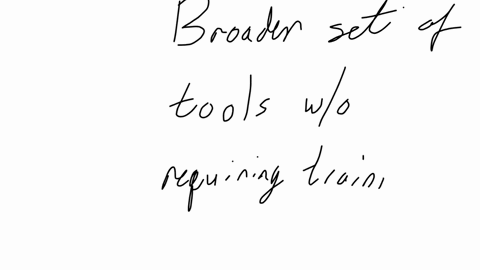 Broader set of
tools w/o
requiring traini